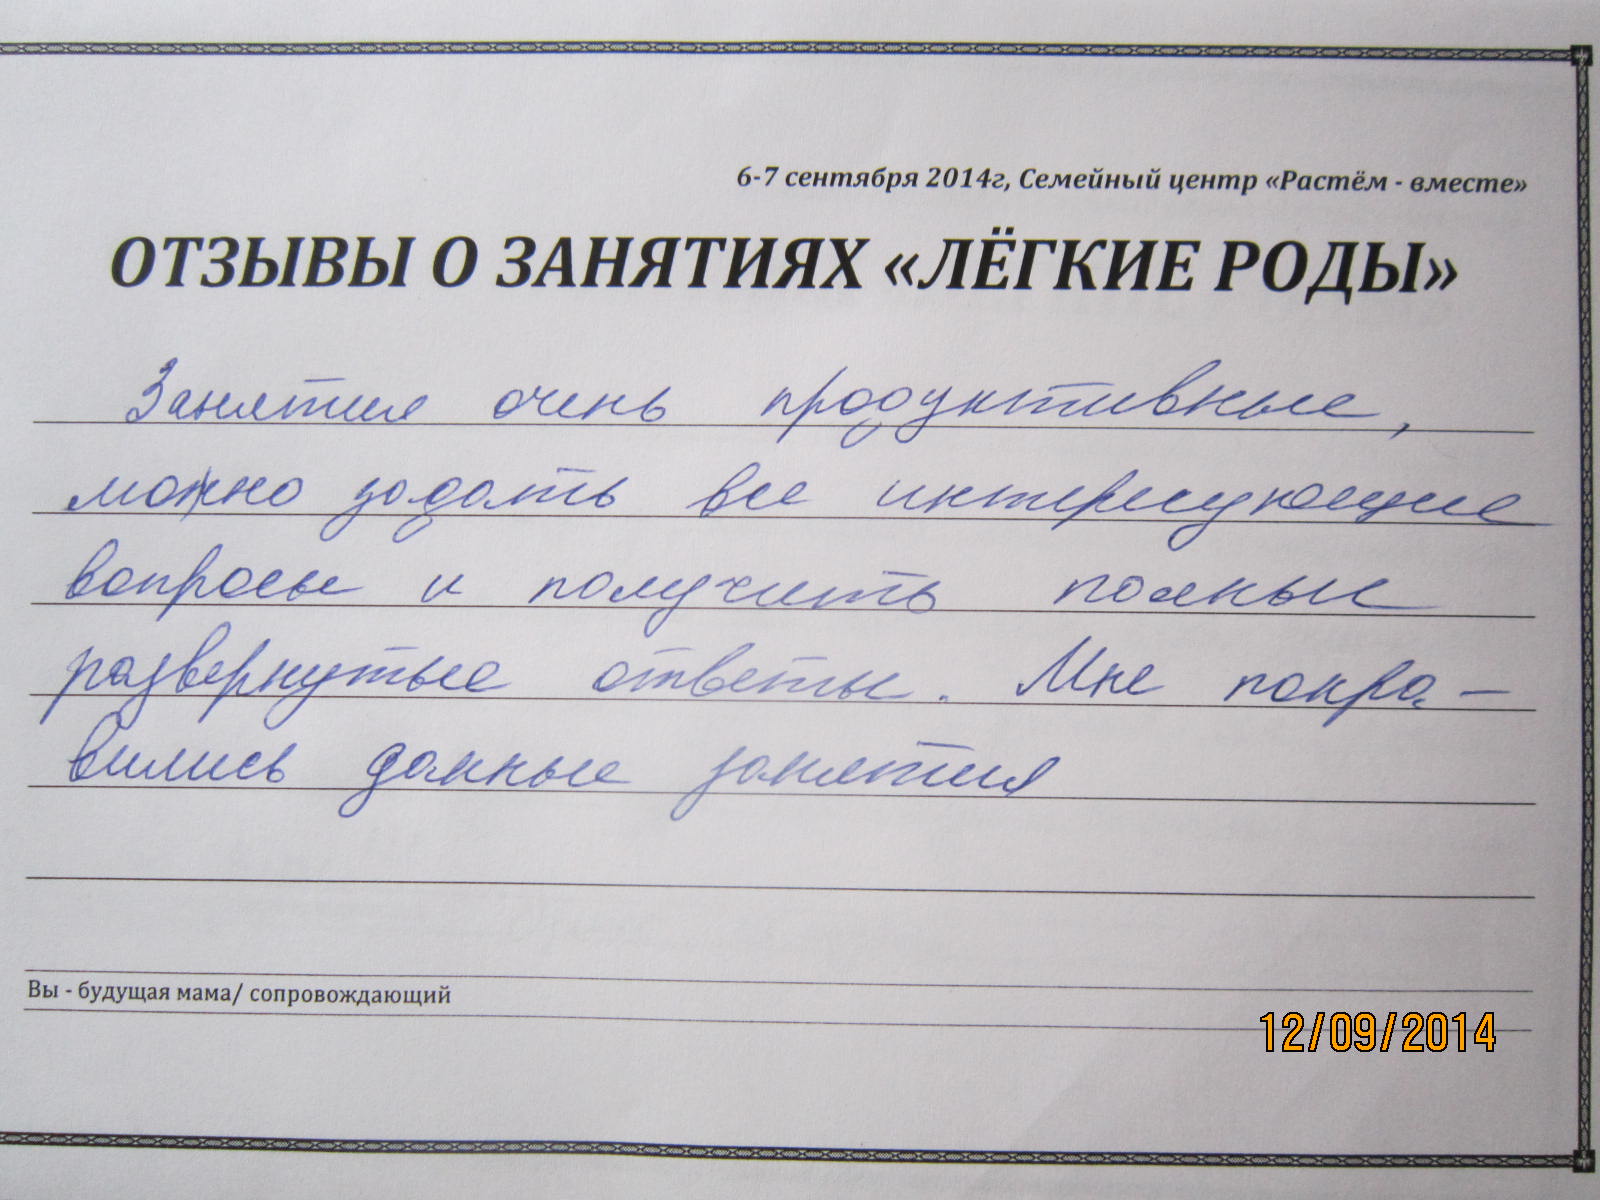 6-7 сентября 2014г, Семейный центр «Растём - вместе»
ОТЗЫВЫ О ЗАНЯТИЯХ «ЛЁГКИЕ РОДЫ»
Занятия очень продуктивные,
можно задать все интересующие
вопросы и получить полные
развернутые ответы. Мне понра-
вились данные занятия
Вы - будущая мама/ сопровождающий
12/09/2014